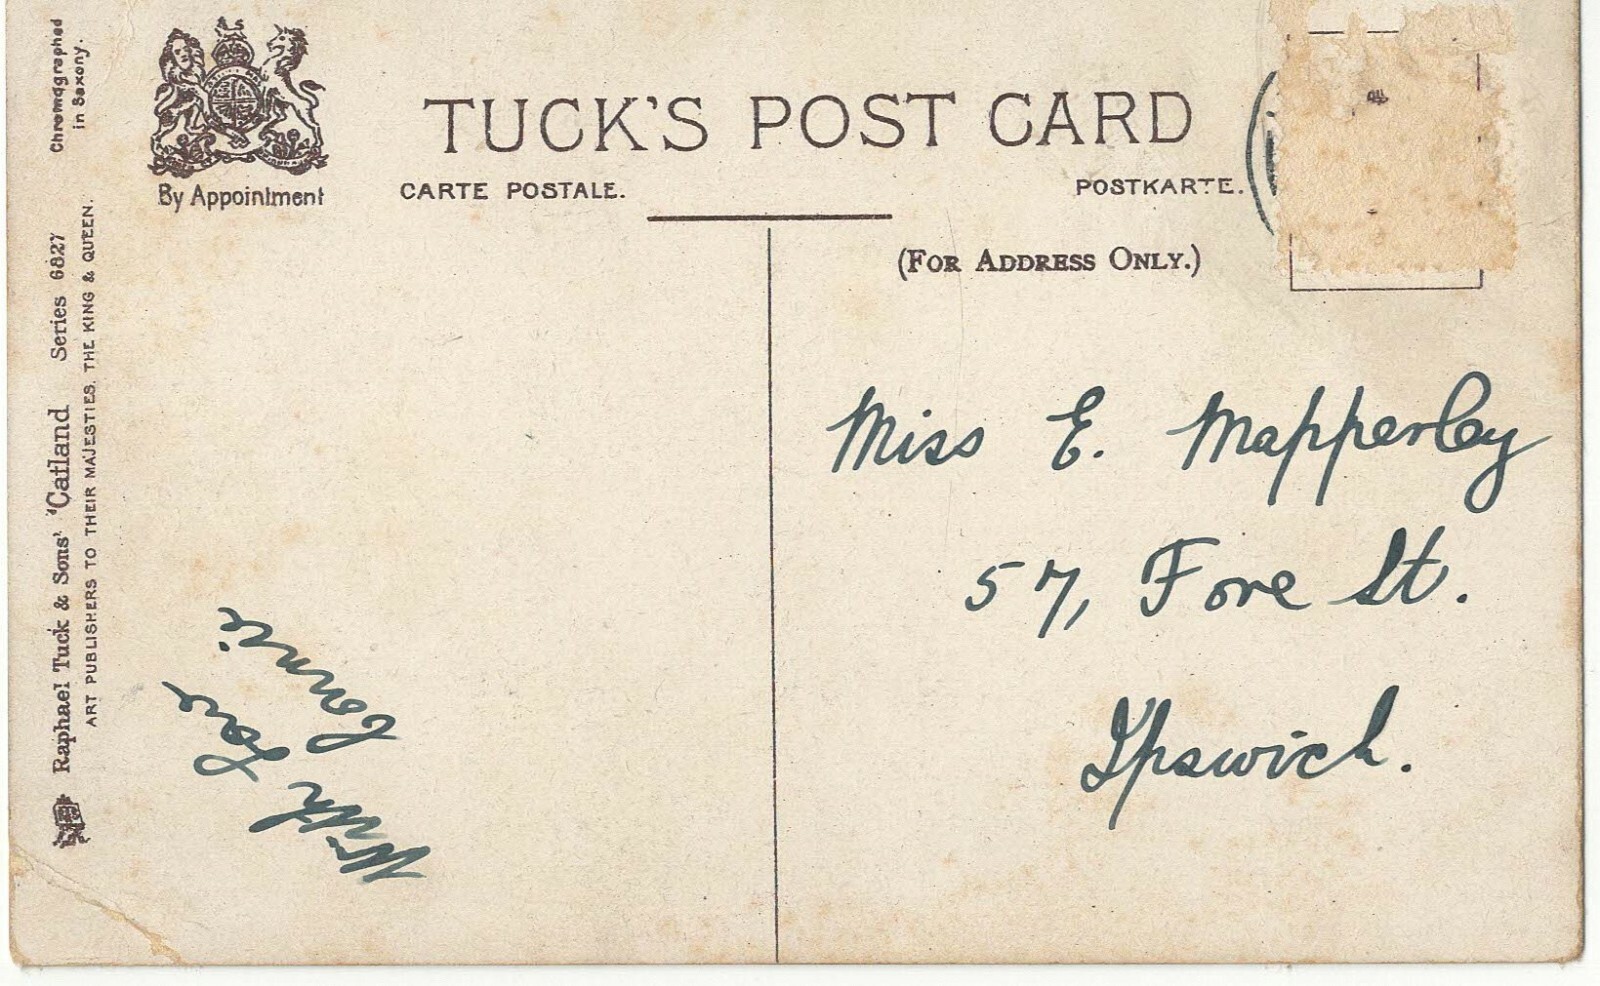 Chromographed
in Saxony.
By Appointment
TUCK'S POST CARD
CARTE POSTALE.
POSTKARTE.
(FOR ADDRESS ONLY.)
Raphael Tuck & Sons' "Catland Series 6827
ART PUBLISHERS TO THEIR MAJESTIES, THE KING & QUEEN.
With love
Connie
Miss E. Mapperley
57, Fore St.
Ipswich.